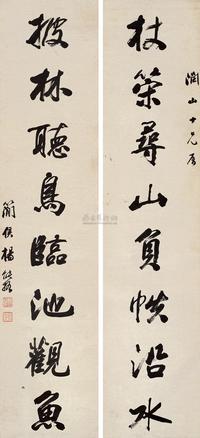 潤山十兄屬
杖策尋山負帙沿水
披林聽鳥臨池觀魚
簡侯楊能格